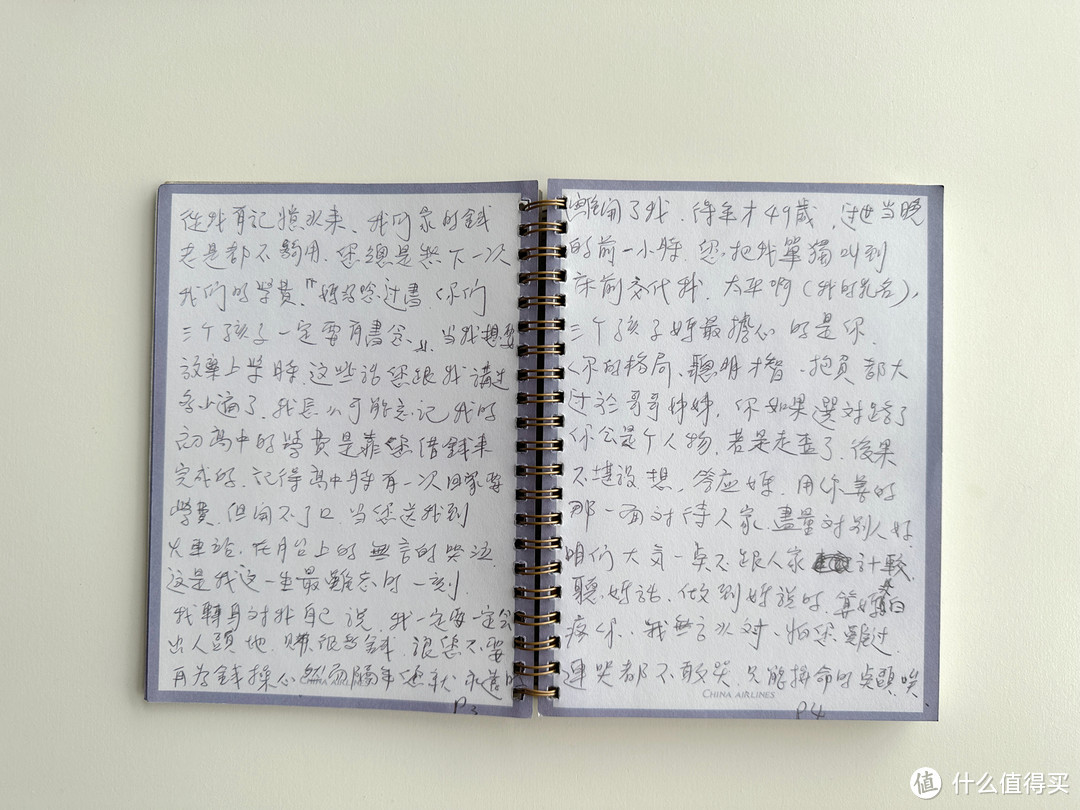 從我有記憶以來、我们家的錢
老是都不夠用.您總是愁下一次
我们的學費."媽媽唸过書 你们
三个孩子一定要有書念."当我想要
放棄上学時.这些话您跟我講过
多少遍了.我怎么可能忘记我的
初高中的學費是靠您借錢来
完成的.记得高中時有一次回家要
學費.但開不了口.当您送我到
火車站.在月台上的無言的哭泣
这是我这一生最難忘的一刻.
我轉身对我自己说.我一定要一定会
出人頭地.賺很多錢.讓您不要
再为錢操心 然而隔年您就永遠的
CHINA AIRLINES
P3
離開了我.得年才49歲.过世当晚
的前一小時.您把我單獨叫到
床前交代我.太平啊(我的乳名),
三个孩子媽最擔心的是你.
你的格局、聰明才智、抱負都大
过於哥哥姊姊.你如果選对路了
你会是个人物.若是走歪了.後果
不堪設想.答应媽.用你善的
那一面对待人家.盡量对别人好.
咱们大气一奌不跟人家計較.
聽媽话.做到媽説的.算媽白
疼你.我無言以对.怕您難过.
連哭都不敢哭.只能拼命的奌頭.唉
CHINA AIRLINES
P4
值 什么值得买